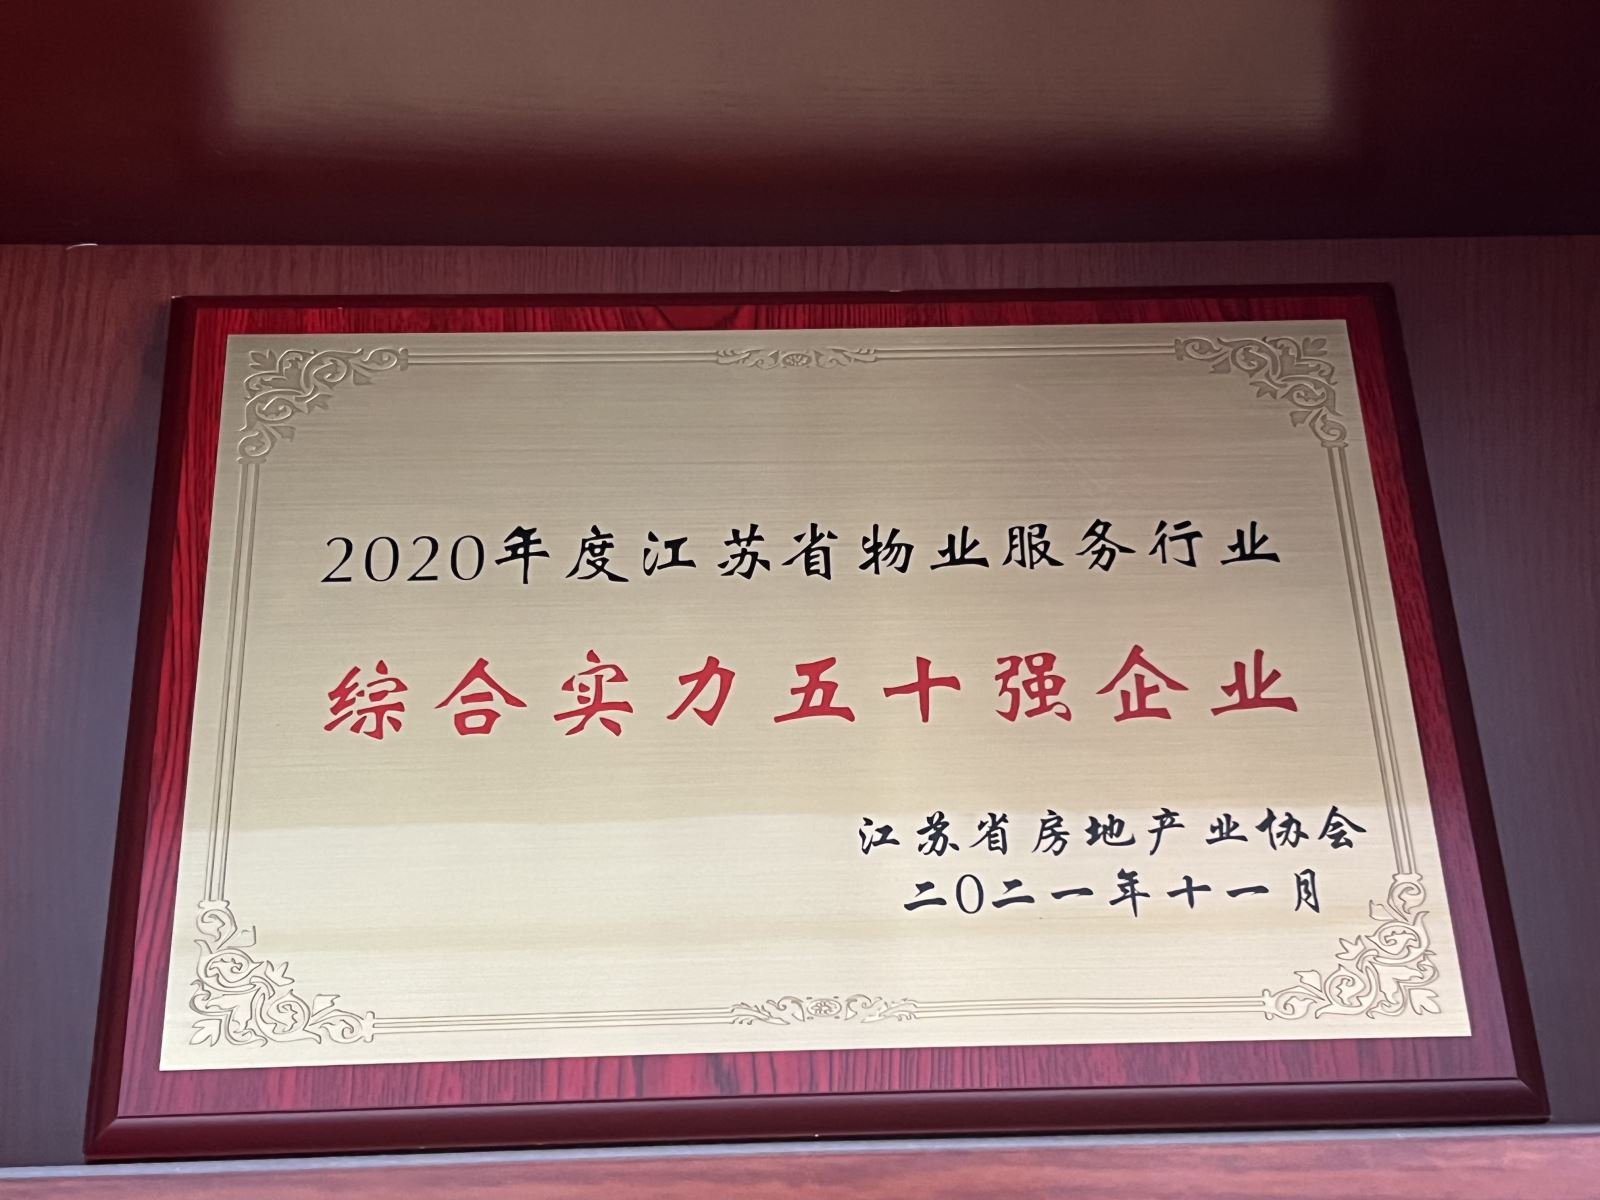 2020年度江苏省物业服务行业
综合实力五十强企业
江苏省房地产业协会
二0二一年十一月